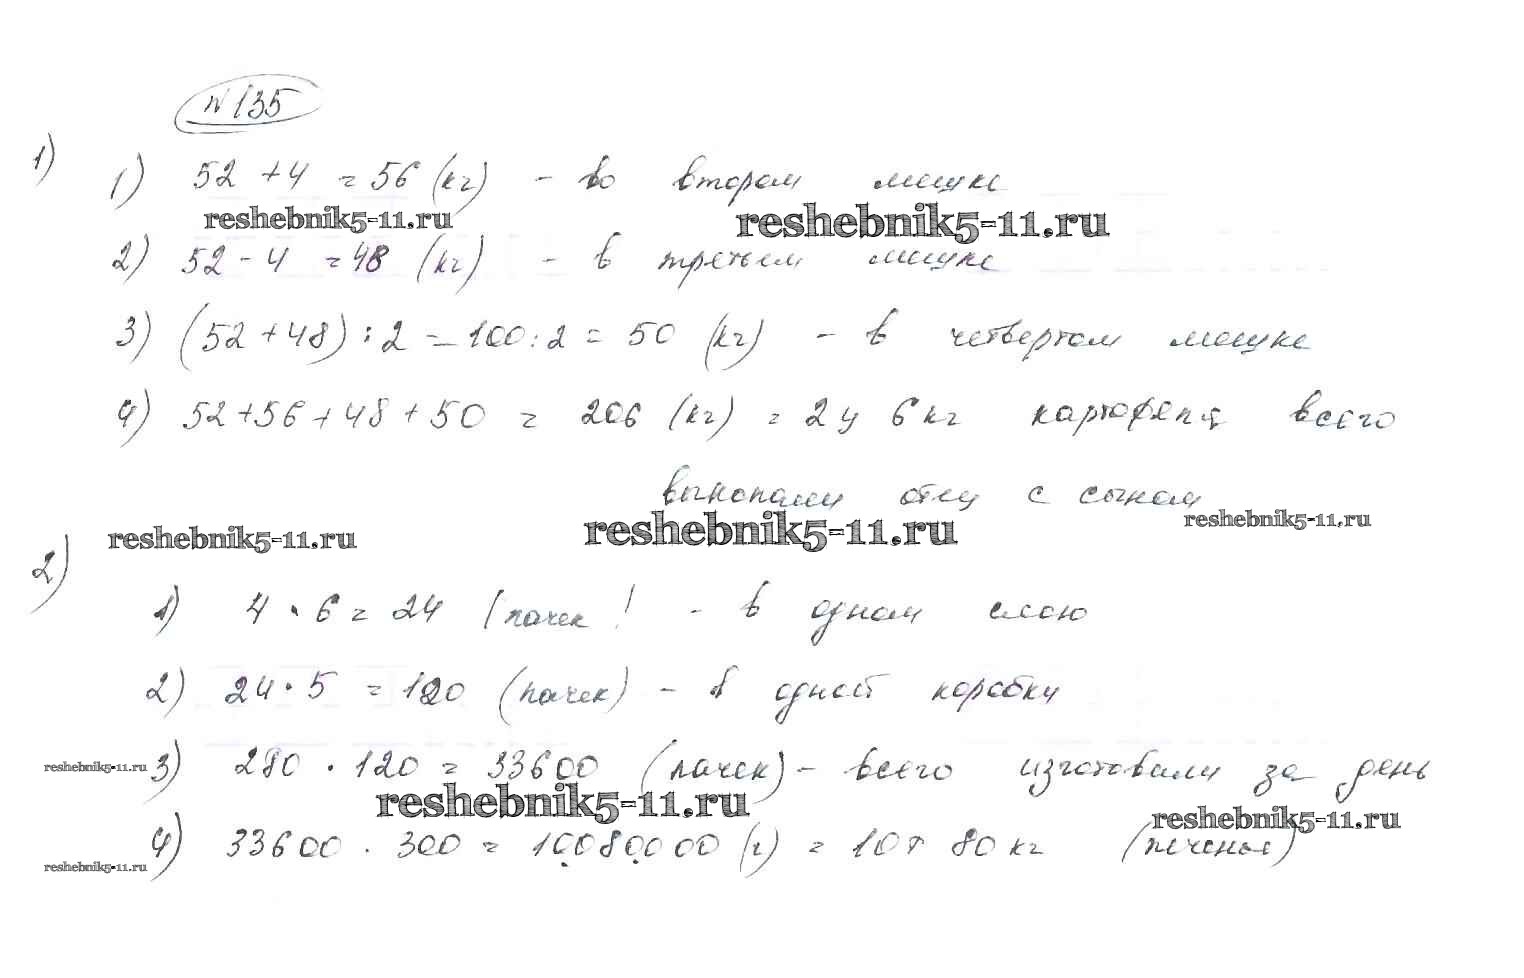 №135
1)
1) 52 + 4 = 56 (кг) - во втором мешке
reshebnik5-11.ru reshebnik5-11.ru
2) 52 - 4 = 48 (кг) - в третьем мешке
3) (52 + 48) : 2 = 100 : 2 = 50 (кг) - в четвертом мешке
4) 52 + 56 + 48 + 50 = 206 (кг) = 2ц 6 кг картофеля всего
выкопали отец с сыном
reshebnik5-11.ru reshebnik5-11.ru reshebnik5-11.ru
2)
1) 4 · 6 = 24 (пачек) - в одном слою
2) 24 · 5 = 120 (пачек) - в одной коробки
reshebnik5-11.ru 3) 280 · 120 = 33600 (пачек) - всего изготовили за день
reshebnik5-11.ru reshebnik5-11.ru
4) 33600 · 300 = 10080000 (г) = 10т 80 кг (печенья)
reshebnik5-11.ru